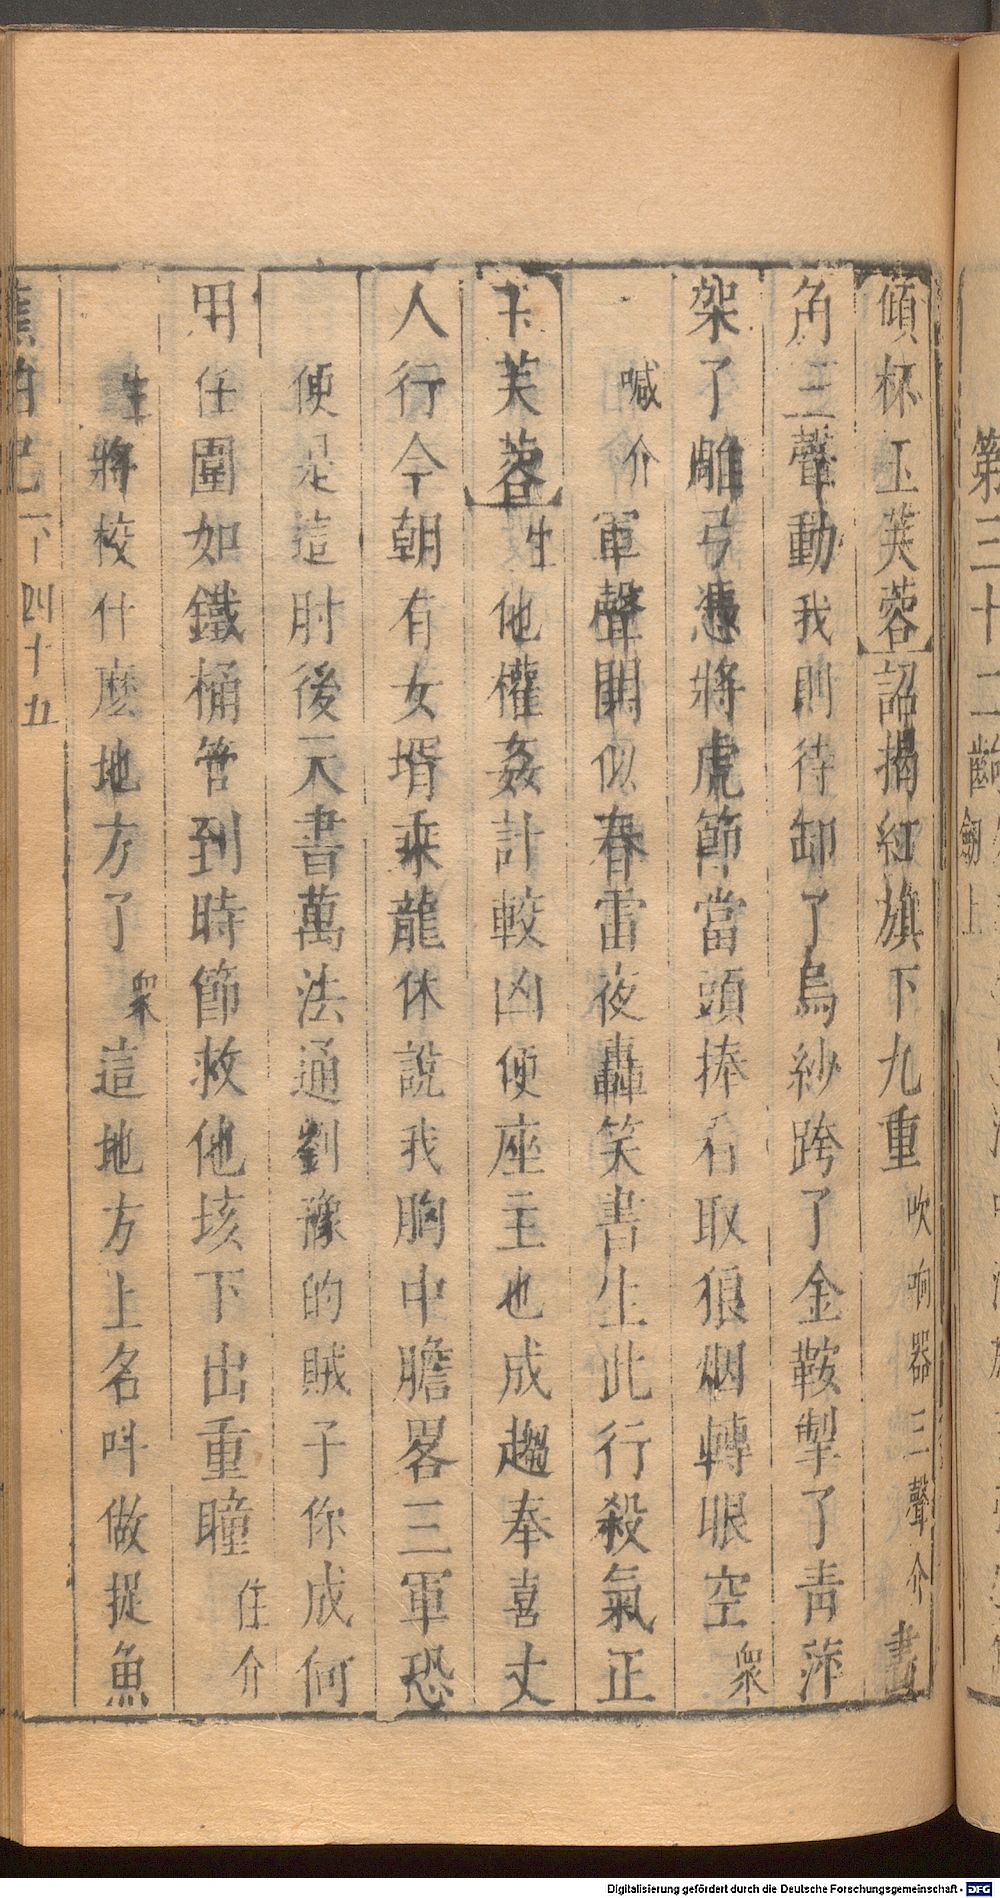 傾杯玉芙蓉詔揭紅旗下九重吹响器三聲介畫
角三聲動我則待卸了烏紗跨了金鞍掣了青萍
架了雕弓憑將虎節當頭捧看取狼烟轉眼空眾
喊介軍聲鬨似春雷夜轟笑書生此行殺氣正
玉芙蓉生他權姦計較凶便座主也成趨奉喜丈
人行今朝有女壻乘龍休說我胸中膽畧三軍恐
便是這肘後天書萬法通劉豫的賊子你成何
用任圍如鐵桶管到時節救他垓下出重瞳住介
生將校什麼地方了眾這地方上名呌做捉魚
下四十五
第三十二齣
劒上
Digitalisierung gefördert durch die Deutsche Forschungsgemeinschaft - DFG